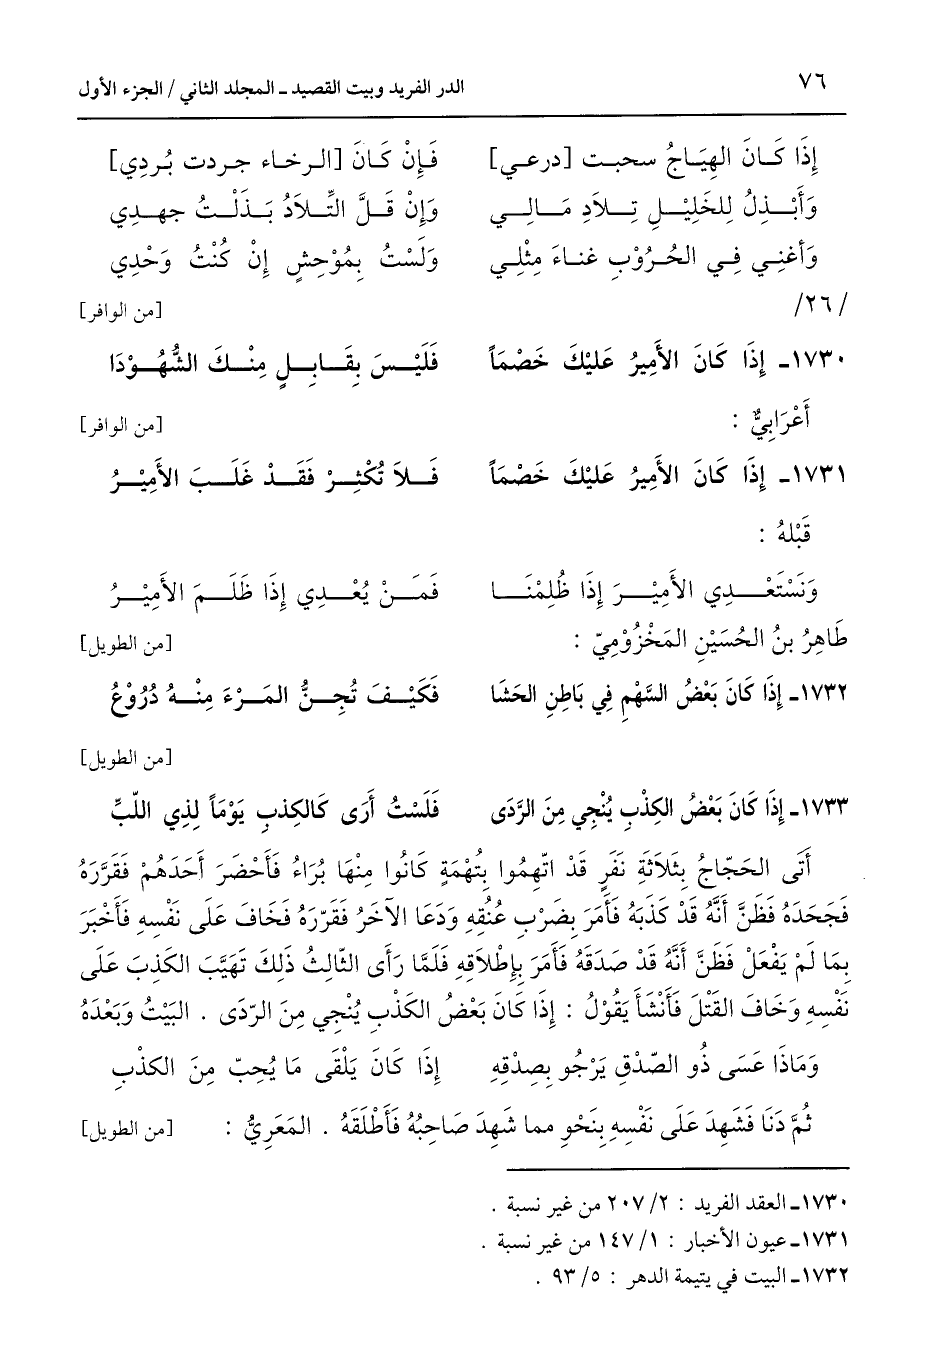 ٧٦ الدر الفريد وبيت القصيد ـ المجلد الثاني / الجزء الأول
إِذَا كَانَ الهِيَاجُ سحبت [درعي] فَإِنْ كَانَ [الرخاء جردت بُردِي]
وَأَبْذلُ لِلخَلِيْلِ تِلاَدِ مَالِي وَإِنْ قَلَّ التِّلاَدُ بَذَلْتُ جهدِي
وَأغنِي فِي الحُرُوْبِ غناءَ مِثْلِي وَلَسْتُ بِمُوْحشٍ إِنْ كُنْتُ وَحْدِي
/٢٦/ [من الوافر]
١٧٣٠ـ إِذَا كَانَ الأَمِيرُ عَلَيْكَ خَصْمَاً فَلَيْسَ بِقَابِلٍ مِنْكَ الشُّهُوْدَا
أَعْرَابِيٌّ : [من الوافر]
١٧٣١ـ إِذَا كَانَ الأَمِيرُ عَلَيْكَ خَصْمَاً فَلاَ تُكْثِرْ فَقَدْ غَلَبَ الأَمِيْرُ
قَبْلهُ :
وَنَسْتَعْدِي الأَمِيْرَ إِذَا ظُلِمْنَا فَمَنْ يُعْدِي إِذَا ظَلَمَ الأَمِيْرُ
طَاهِرُ بنُ الحُسَيْنِ المَخْزُوْمِيّ : [من الطويل]
١٧٣٢ـ إِذَا كَانَ بَعْضُ السَّهْمِ فِي بَاطِنِ الحَشَا فَكَيْفَ تُجِنُّ المَرْءَ مِنْهُ دُرُوْعُ
[من الطويل]
١٧٣٣ـ إِذَا كَانَ بَعْضُ الكِذْبِ يُنْجِي مِنَ الرَّدَى فَلَسْتُ أَرَى كَالكِذبِ يَوْمَاً لِذِي اللّبِّ
أَتَى الحَجّاجُ بِثَلاَثَةِ نَفَرٍ قَدْ اتّهِمُوا بِتُهْمَةٍ كَانُوا مِنْهَا بُرَاءُ فَأَحْضَرَ أَحَدَهُمْ فَقَرَّرَهُ
فَجَحَدَهُ فَظَنَّ أَنَّهُ قَدْ كَذَبَهُ فَأَمَرَ بِضَرْبِ عُنُقِهِ وَدَعَا الآخَرُ فَقَرّرَهُ فَخَافَ عَلَى نَفْسِهِ فَأَخْبَرَ
بِمَا لَمْ يَفْعَلْ فَظَنَّ أَنَّهُ قَدْ صَدَقَهُ فَأَمَرَ بِإِطْلاَقِهِ فَلَمَّا رَأَى الثّالِثُ ذَلِكَ تَهَيَّبَ الكَذِبَ عَلَى
نَفْسِهِ وَخَافَ القَتْلَ فَأَنْشَأَ يَقُوْلُ : إِذَا كَانَ بَعْضُ الكَذْبِ يُنْجِي مِنَ الرّدَى . البَيْتُ وَبَعْدَهُ
وَمَاذَا عَسَى ذُو الصّدْقِ يَرْجُو بِصِدْقِهِ إِذَا كَانَ يَلْقَى مَا يُحِبّ مِنَ الكذْبِ
ثُمَّ دَنَا فَشَهِدَ عَلَى نَفْسِهِ بِنَحْوِ مما شَهِدَ صَاحِبُهُ فَأَطْلَقَهُ . المَعَرِيُّ : [من الطويل]
١٧٣٠ـ العقد الفريد : ٢٠٧/٢ من غير نسبة .
١٧٣١ـ عيون الأخبار : ١٤٧/١ من غير نسبة .
١٧٣٢ـ البيت في يتيمة الدهر : ٩٣/٥ .